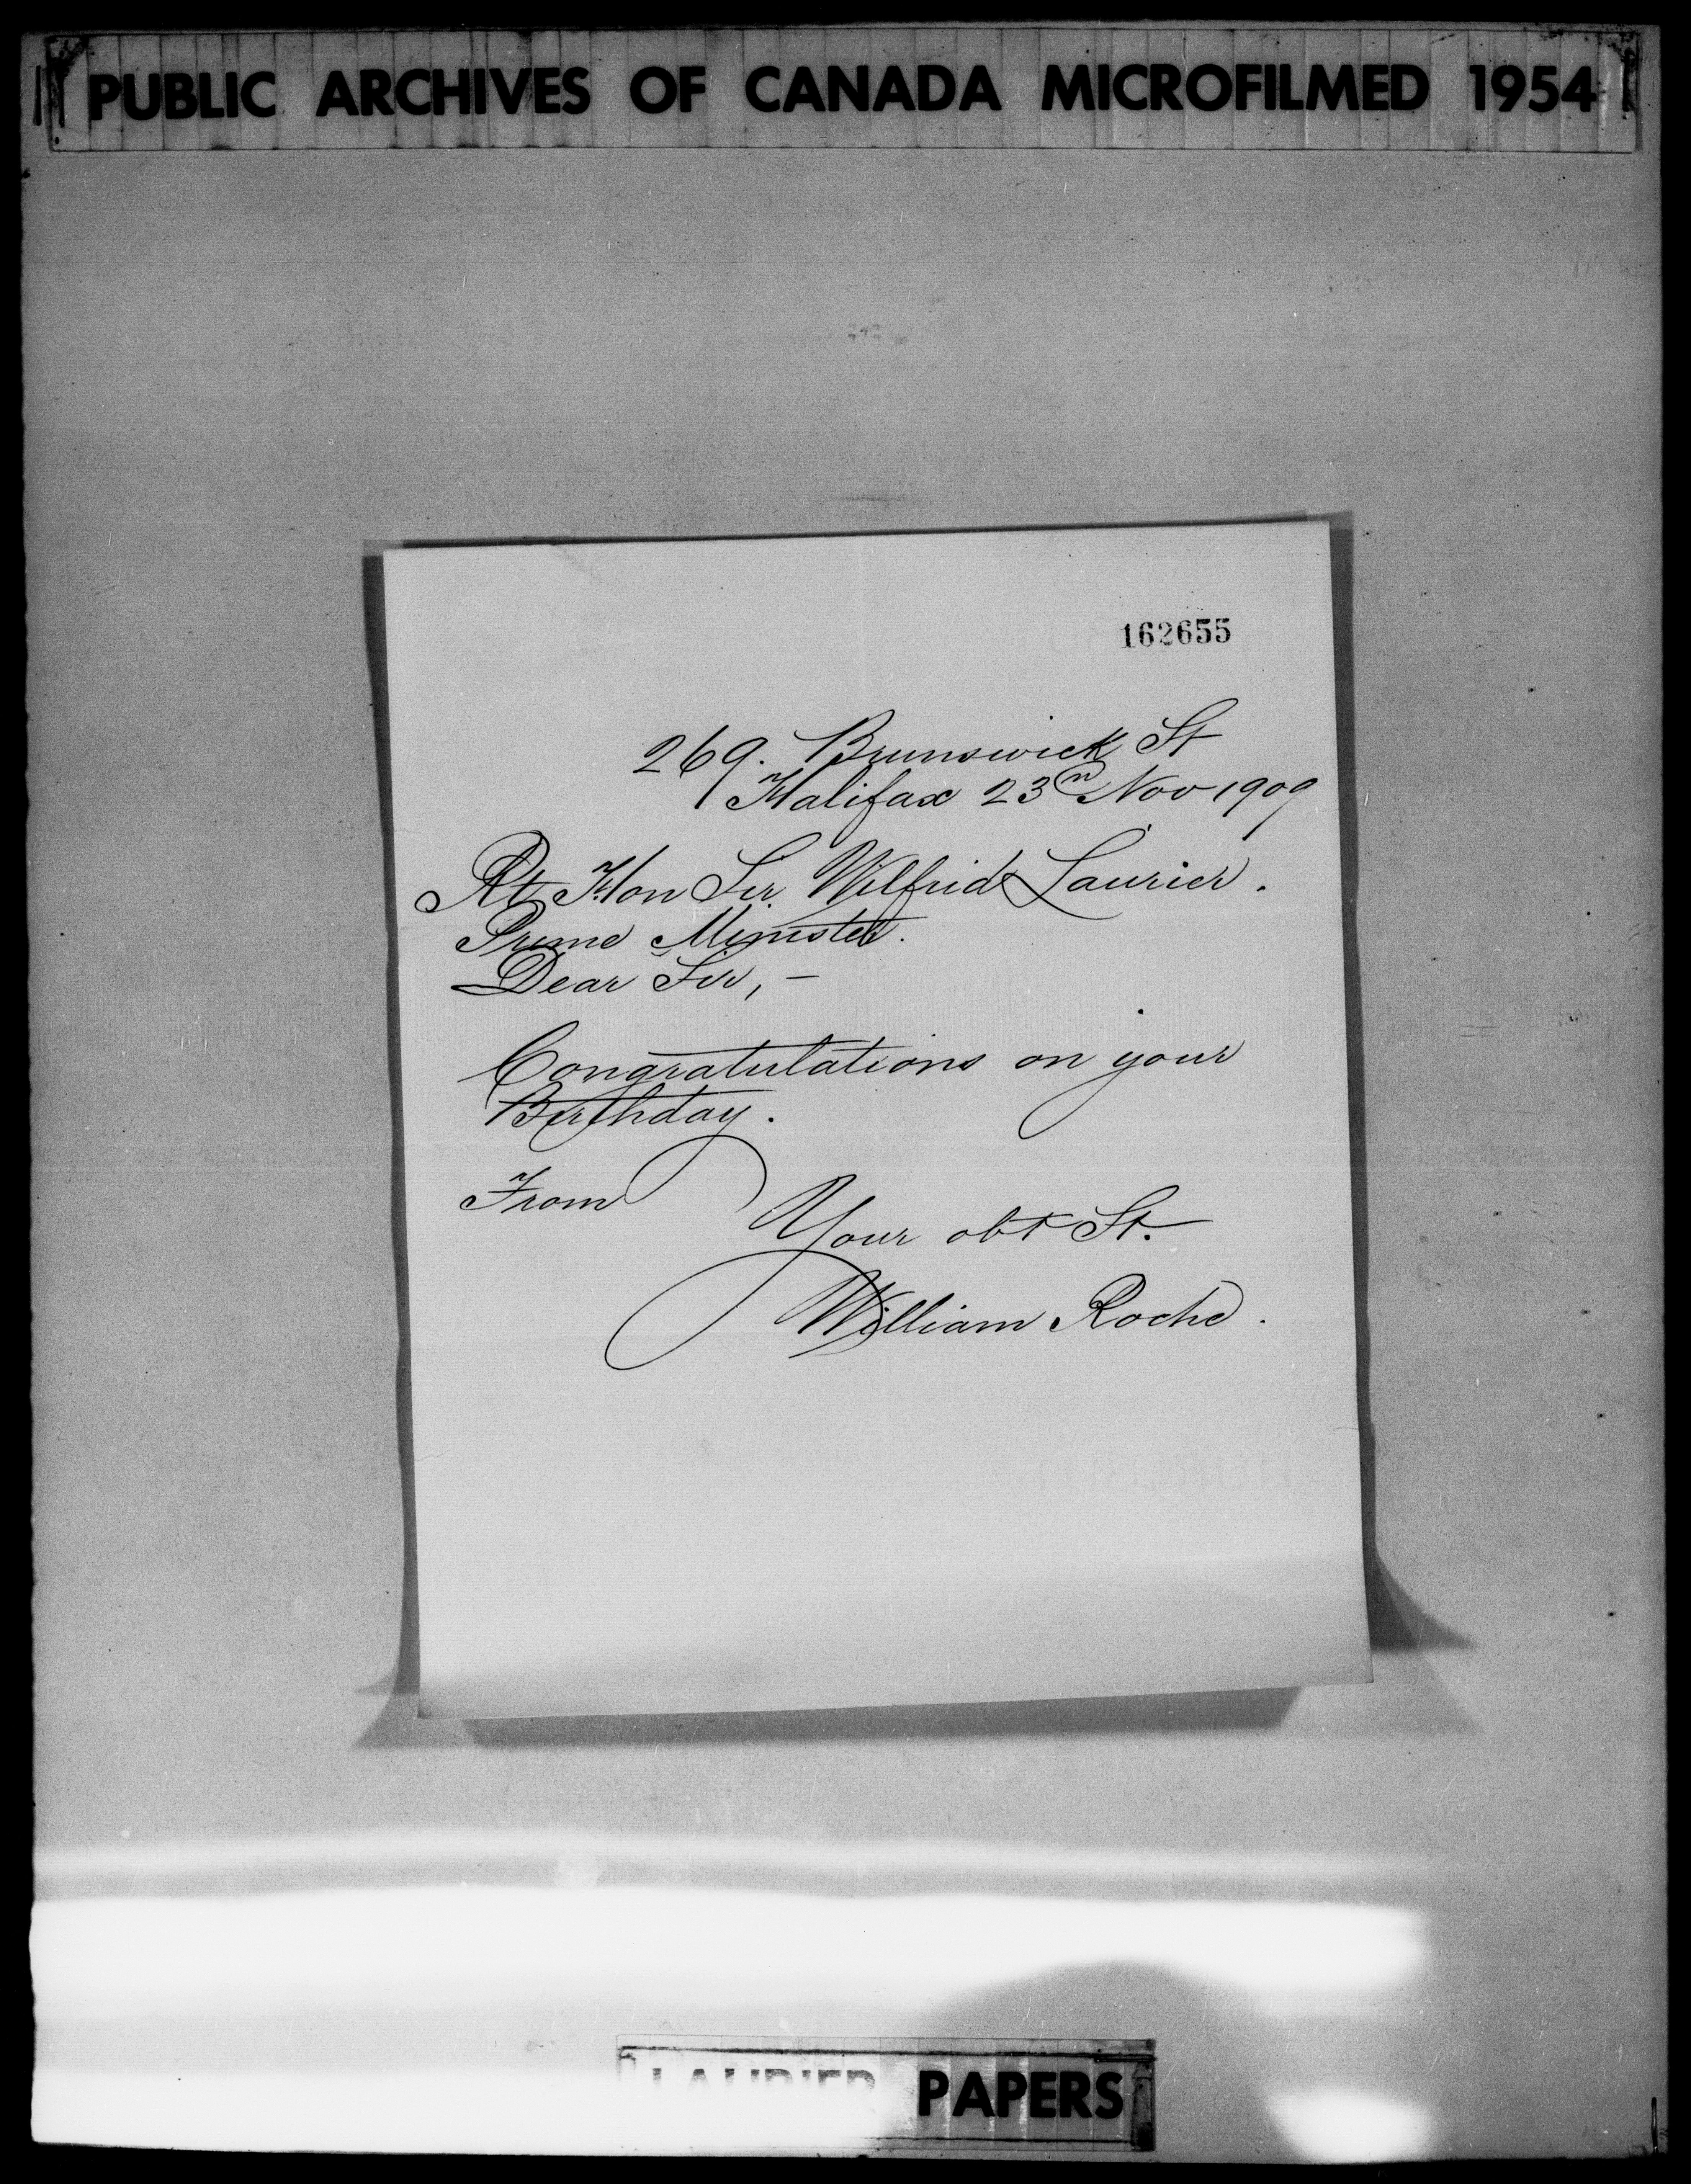 PUBLIC ARCHIVES OF CANADA MICROFILMED 1954
162655
269. Brunswick St
Halifax 23rd Nov 1909
Rt Hon Sir Wilfrid Laurier.
Prime Minister.
Dear Sir, –
Congratulations on your
Birthday.
From
Your obt St.
William Roche.
LAURIER PAPERS